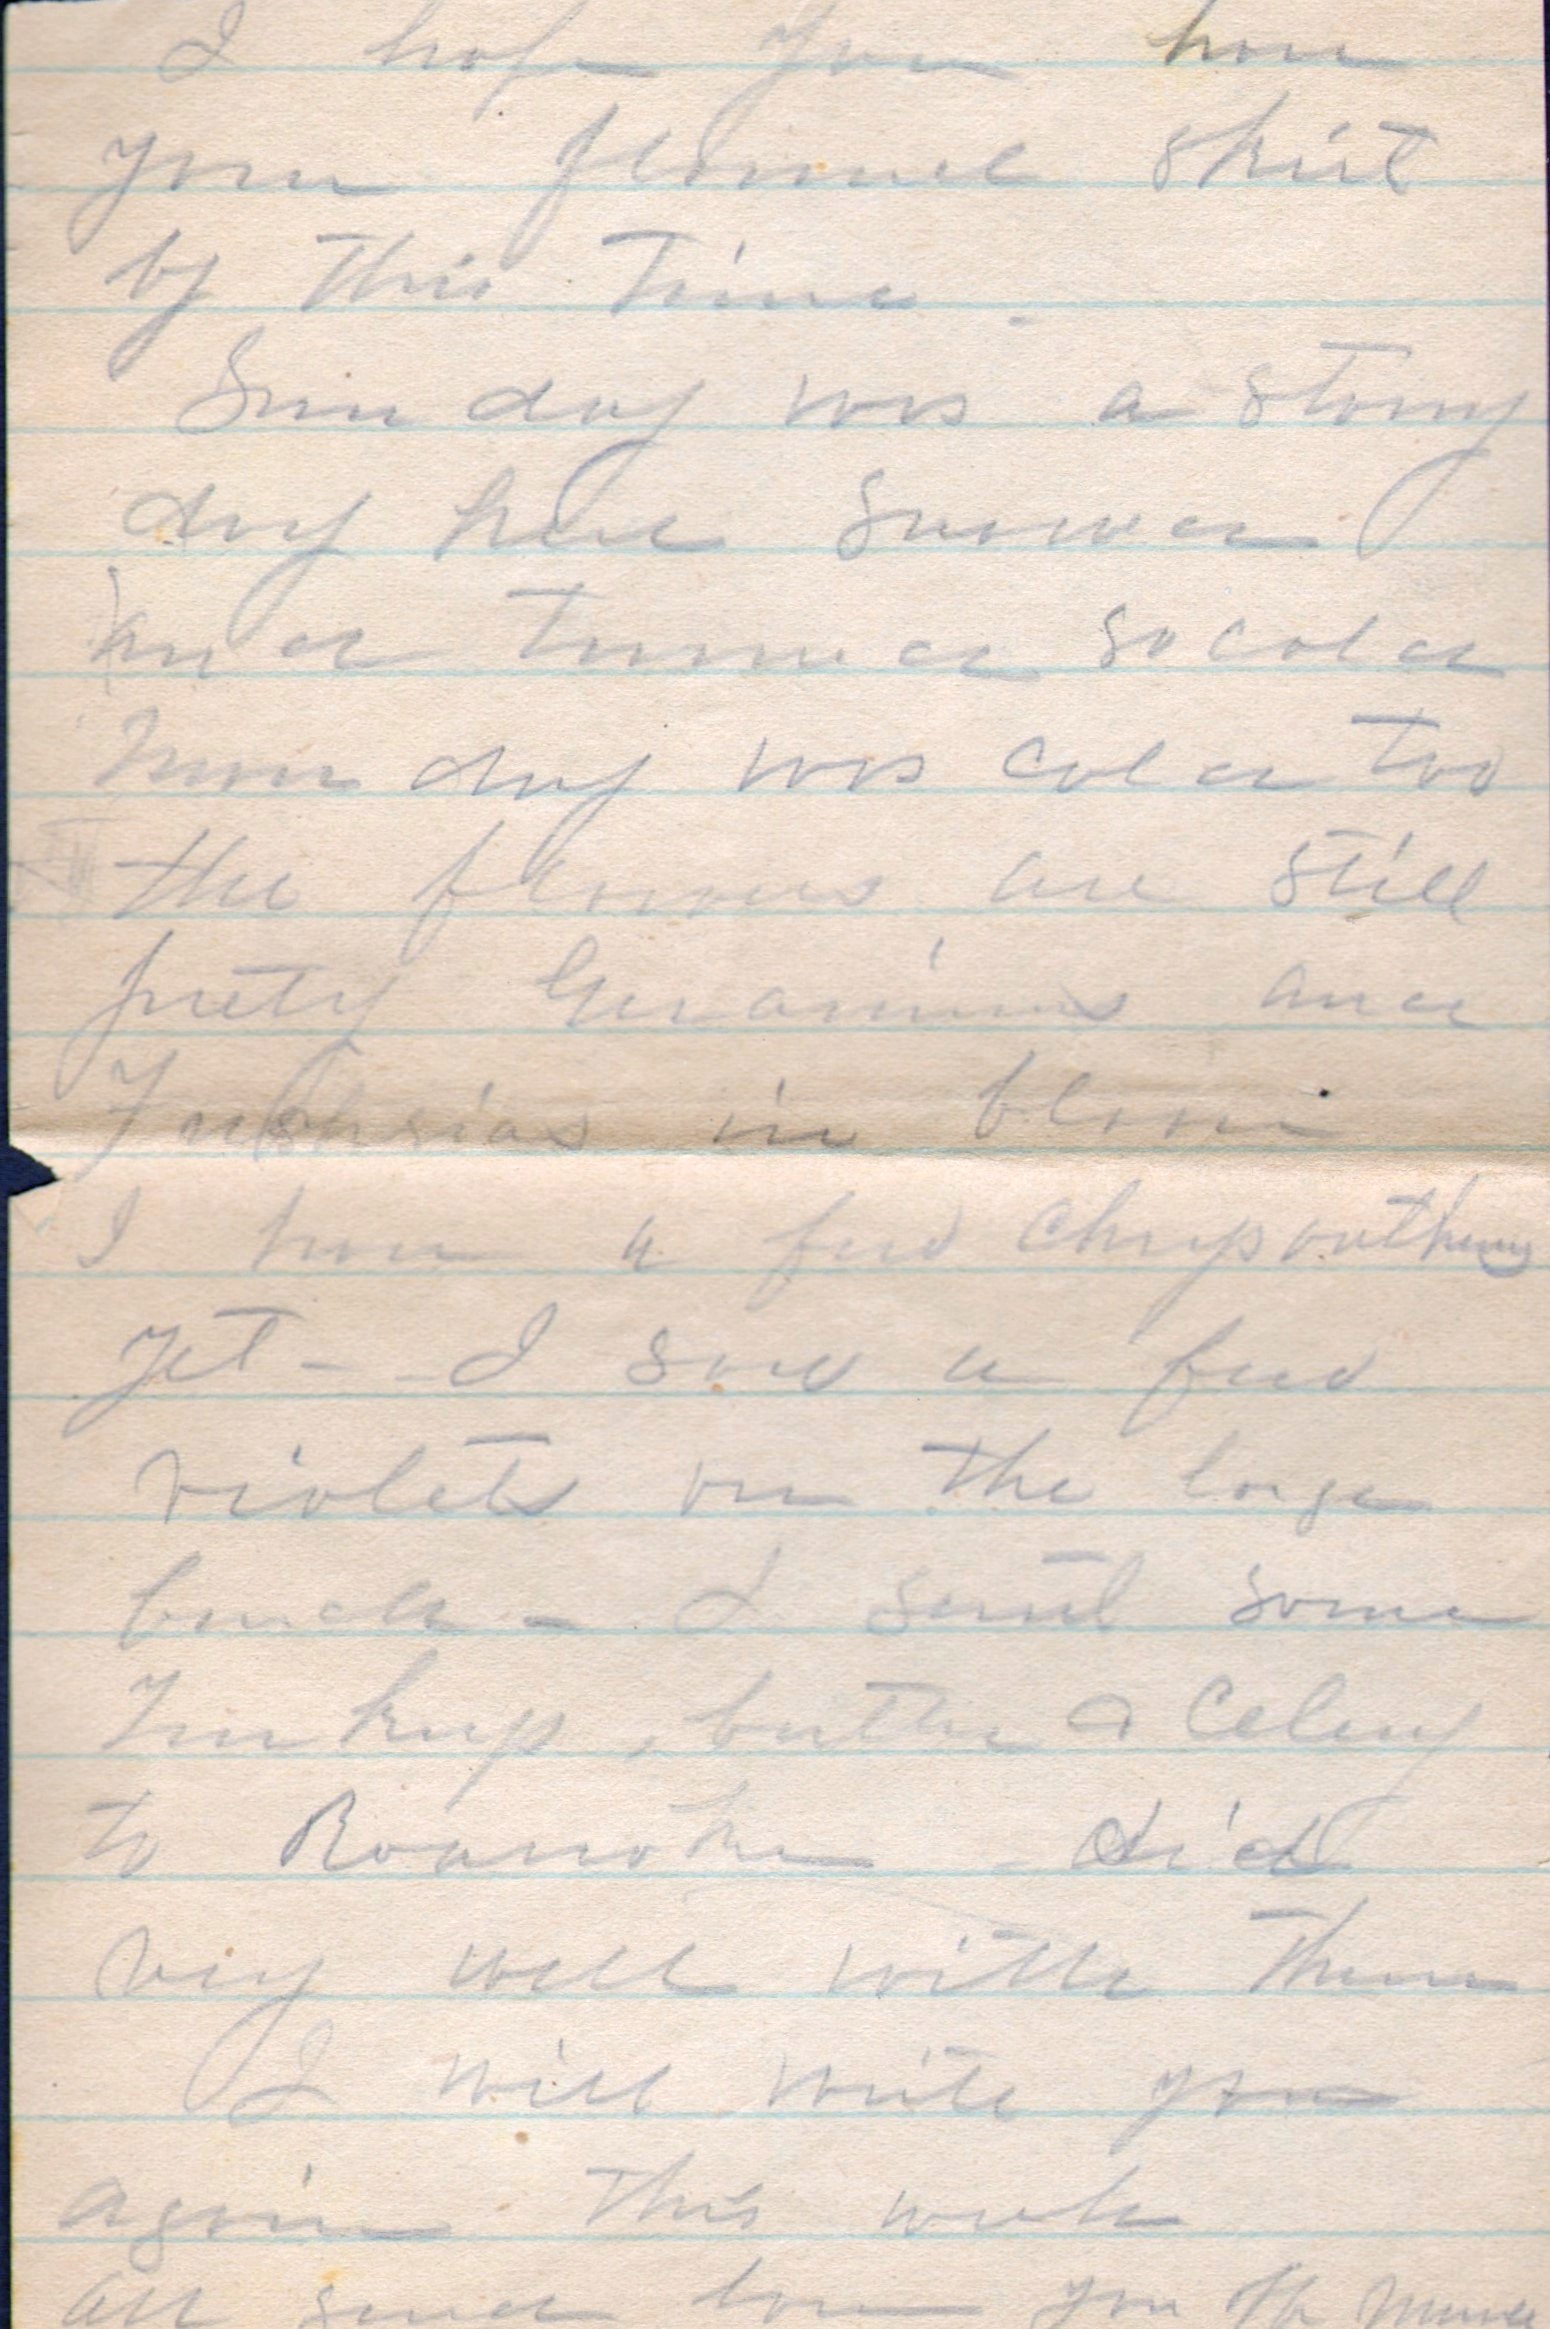 I hope you have
your flannel shirt
by this time.
Sunday was a stormy
day here snowed
and turned so cold
Monday was cold too
the flowers are still
prety Geraniums and
Fuchsias in bloom
I have a few Chrysanthems
yet - I saw a few
violets on the large
- I sent some
Turkeys, butter & Celery
to Roanoke did
very well with them
I will write you
again this week
all send love your